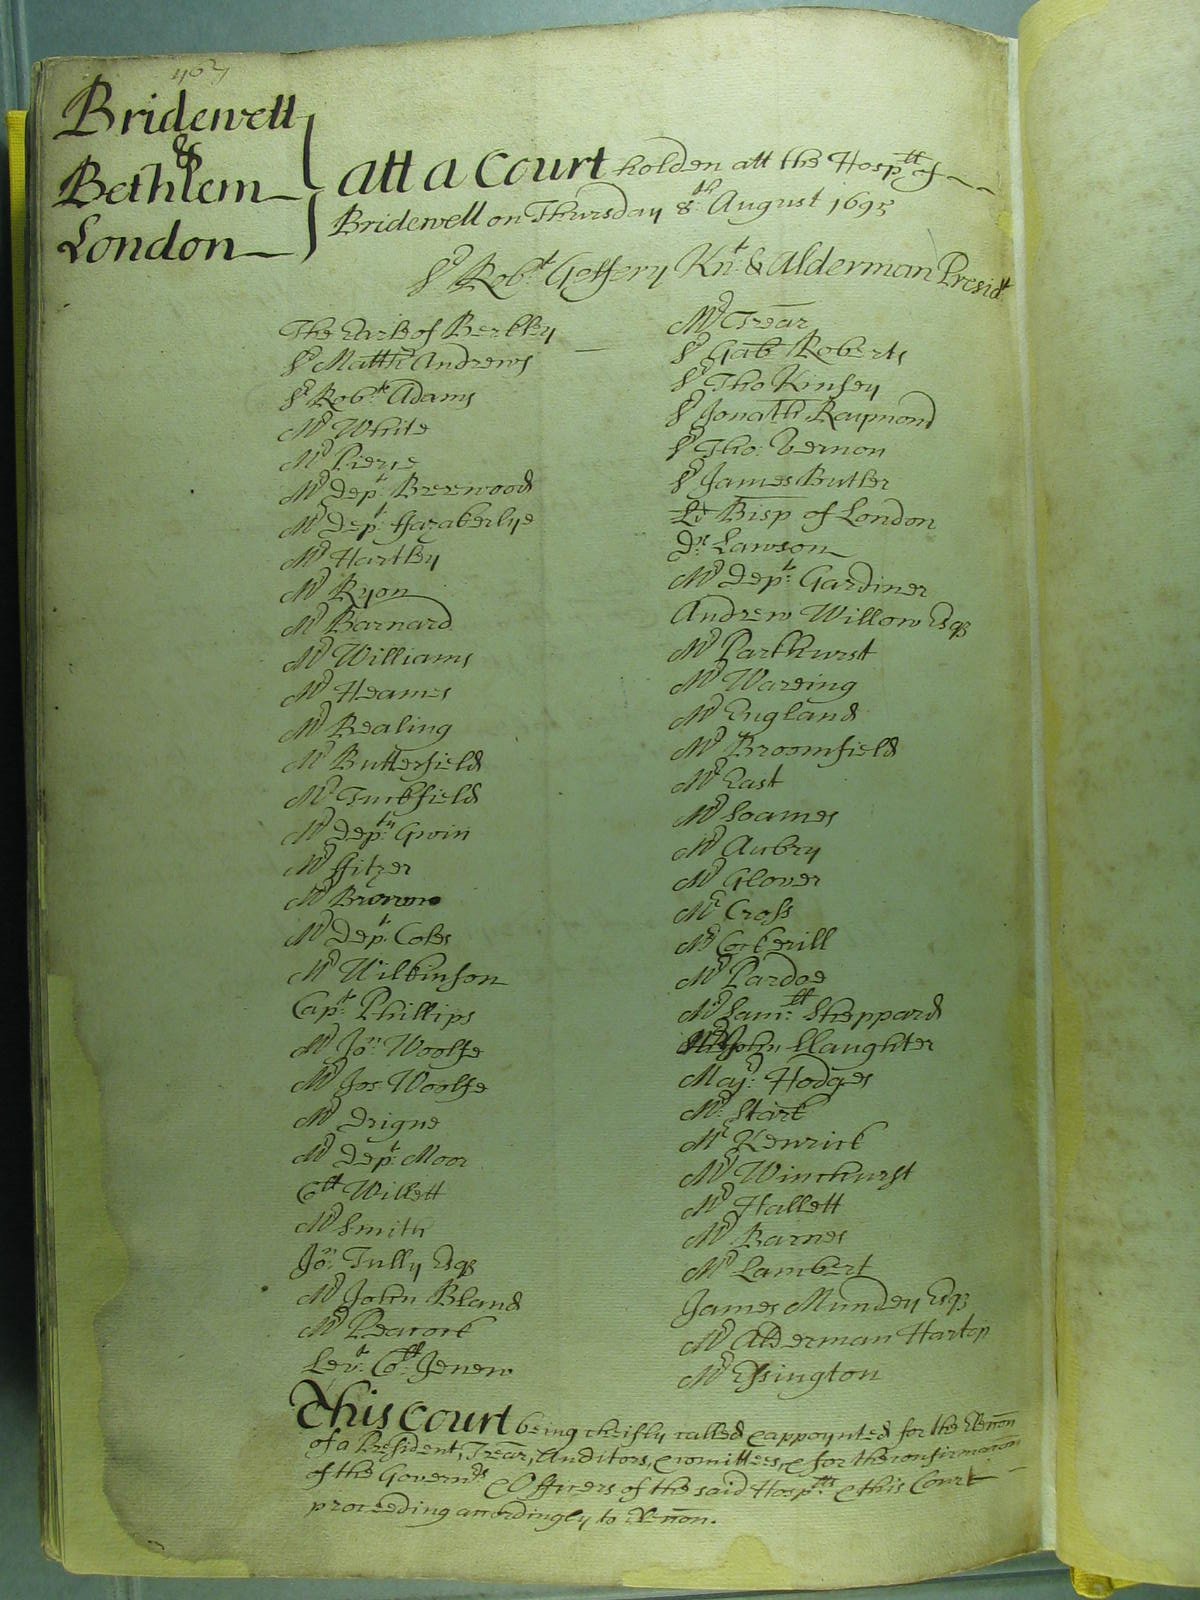 407
Bridewell
&
Bethlem
London
Att a Court holden att the Hosp.tll of
Bridewell on Thursday 8.th August 1695
Sr Rob.t Geffery Kn.t & Alderman Presid.t
The Earle of Berkley
Sr Matth Andrews
Sr Rob.t Adams
Mr White
Mr Pierse
Mr Dep.t Brerwood
Mr Dep.t ffazakerlye
Mr Hartley
Mr Ryon
Mr Barnard
Mr Williams
Mr Heames
Mr Realing
Mr Butterfield
Mr Tuckfield
Mr Dep.ty Gwin
Mr ffitzer
Mr Browne
Mr Dep.t Coles
Mr Wilkinson
Cap.t Phillips
Mr Jo.n Woolfe
Mr Jos Woolfe
Mr Drigue
Mr Dep.t Moor
Coll Willett
Mr Smith
Jo.n Tully Esqr
Mr John Bland
Mr Peacock
Lev.t Co.ll Jenew
Mr Trear
Sr Gab Roberts
Sr Tho Kinsey
Sr Jonath Raymond
Sr Tho: Vernon
Sr James Butler
Ld Bisp of London
Dr. Lawson
Mr Dep.t Gardiner
Andrew Willow Esqr
Mr Parkhurst
Mr Wareing
Mr England
Mr Broomfield
Mr East
Mr Soames
Mr Aubry
Mr Glover
Mr Cross
Mr Cockerill
Mr Pardoe
Mr Sam.ll Sheppard
John Slaughter
Maj.r Hodges
Mr. Start
Mr Kenrick
Mr Winchurst
Mr Hallett
Mr Barnes
Mr Lambert
James Mundey Esqr
Mr Alderman Hartop
Mr Essington
This Court being cheifly called & appoynted for the Elecon
of a President, Trear, Auditors, & comittees, & for the confirmacon
of the Govern.rs & Officers of the said Hosp.tlls & this Court
proceeding accordingly to Eleccon.